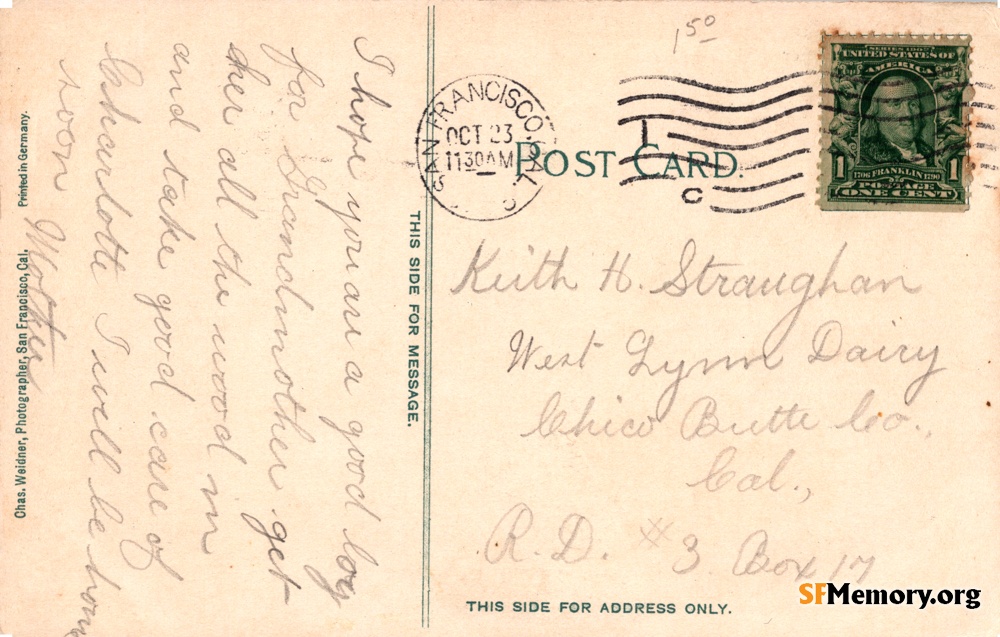 I hope you are a good boy
for Grandmother get
her all the wood in
and take good care of
Charlotte I will be home
soon
Mother
Chas. Weidner, Photographer, San Francisco, Cal. Printed in Germany.
THIS SIDE FOR MESSAGE.
1 50
SAN FRANCISCO, CAL
OCT 23
1130AM
I
C
POST CARD.
SERIES 1902
UNITED STATES OF
AMERICA
1 1
1706 FRANKLIN 1790
POSTAGE
ONE CENT
Keith H. Straughan
West Lynn Dairy
Chico Butte Co.,
Cal.,
R.D. # 3 Box 17
THIS SIDE FOR ADDRESS ONLY.
SFMemory.org